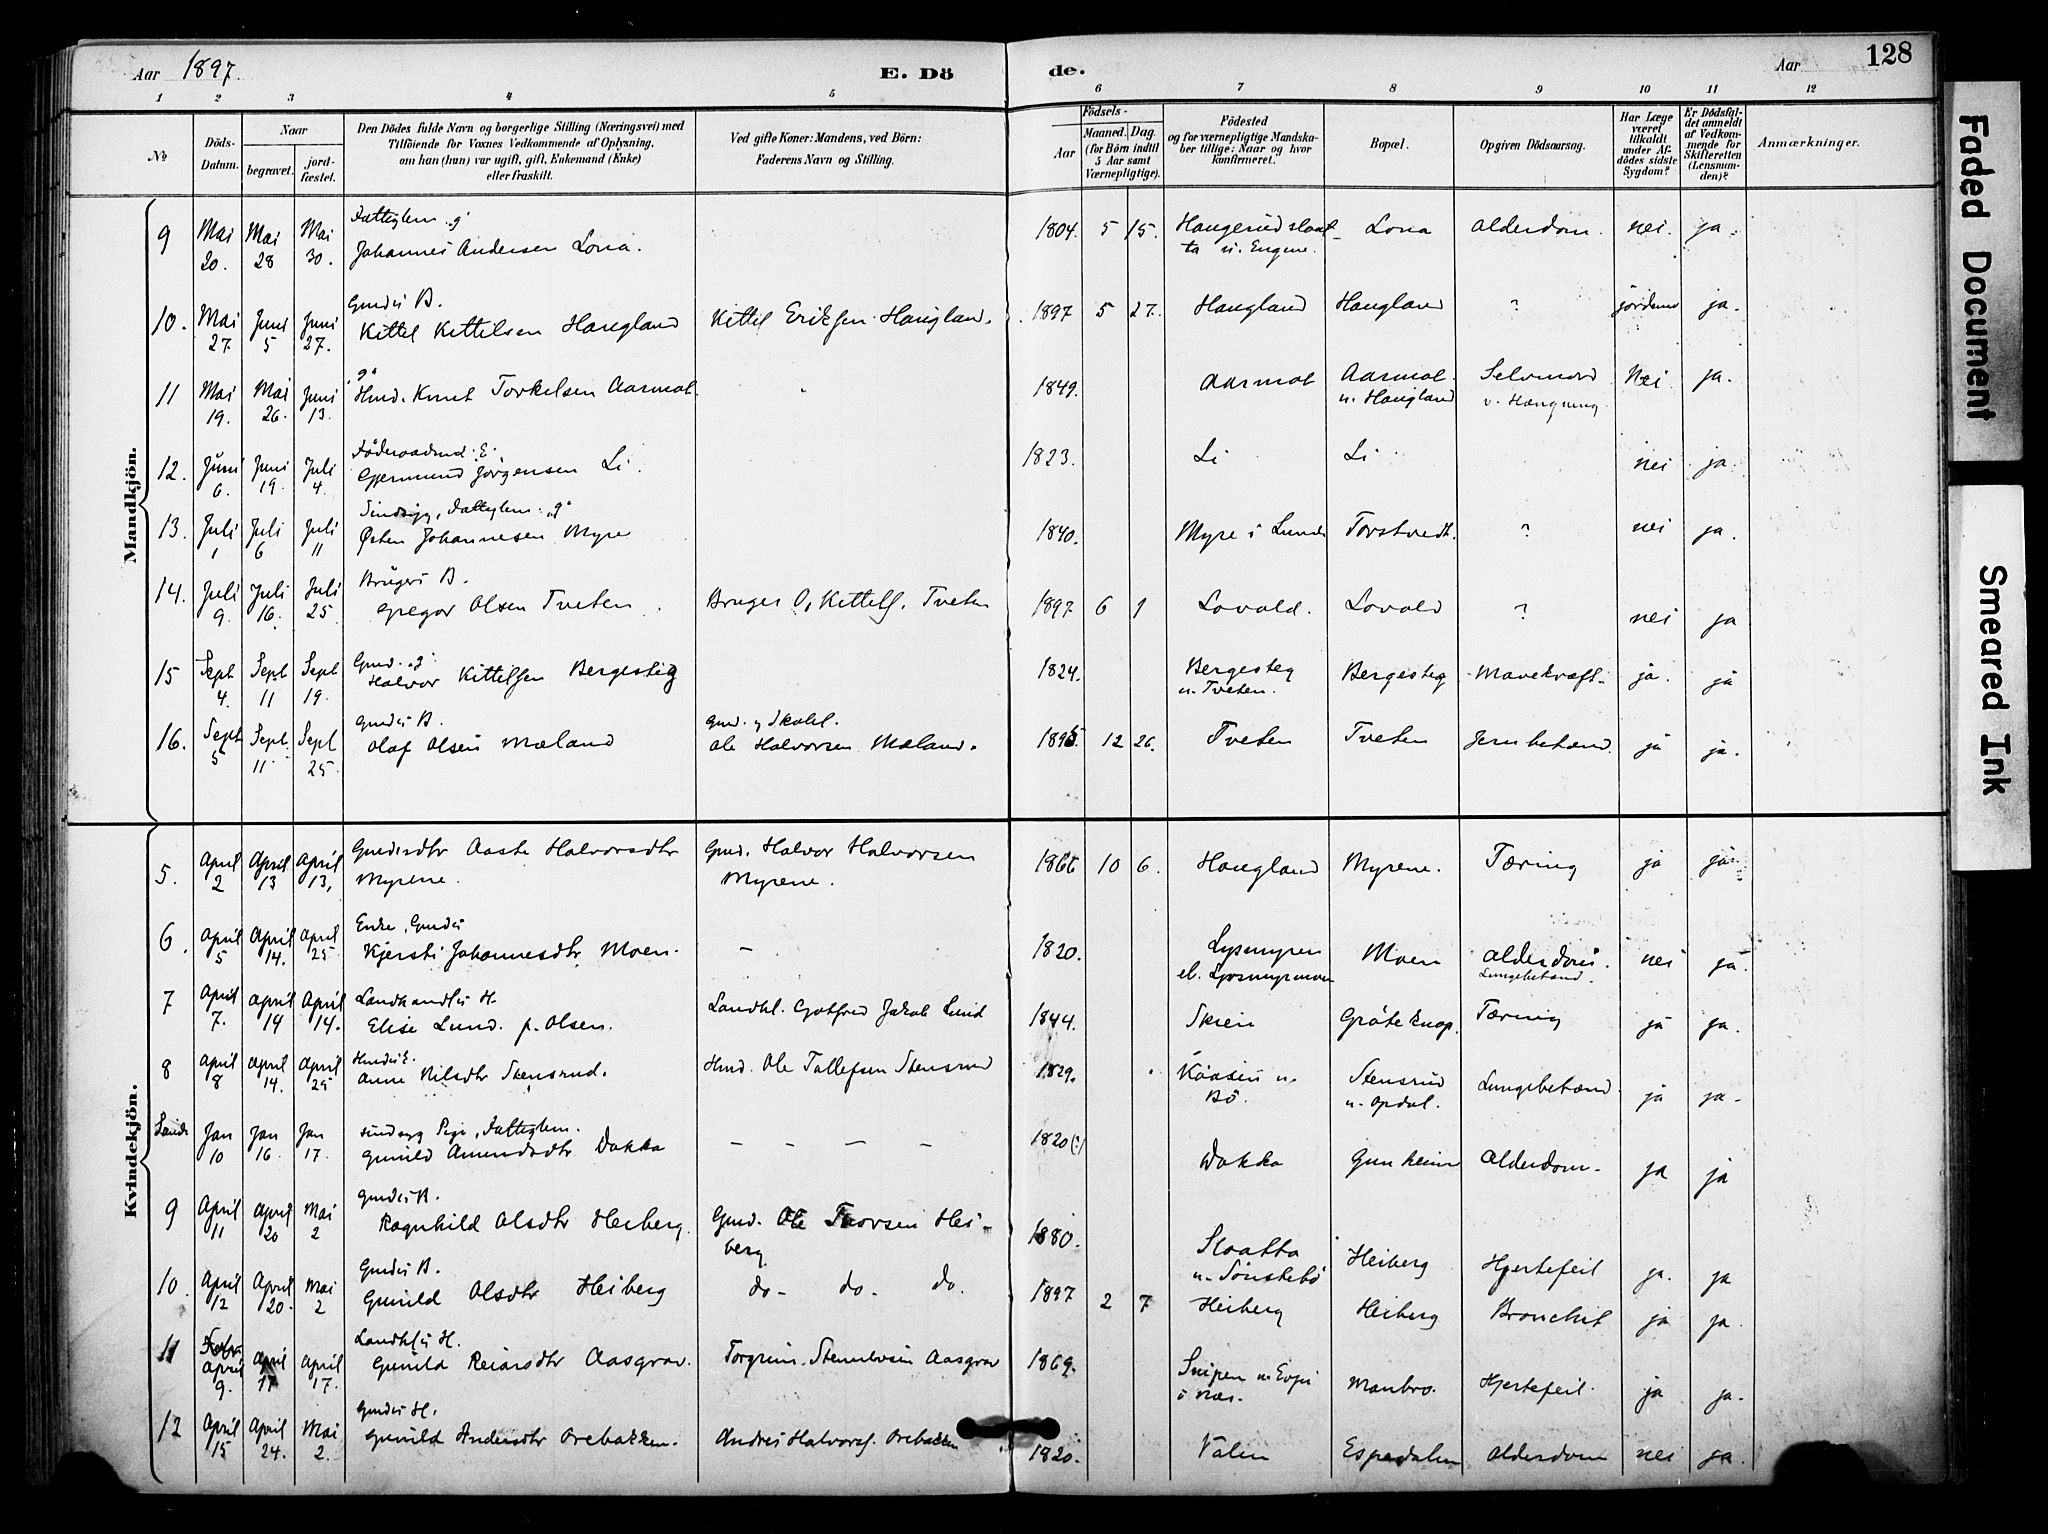 Aar 1897. E. Dö de. Aar 128
1 2 3 4 5 6 7 8 9 10 11 12
№ Döds-Datum. Naar begravet. jordfæstet. Den Dödes fulde Navn og borgerlige Stilling (Næringsvei) med Tilföiende for Voxnes Vedkommende af Oplysning, om han (hun) var ugift, gift, Enkemand (Enke) eller fraskilt. Ved gifte Koner: Mandens, ved Börn: Faderens Navn og Stilling. Födsels- Aar Maaned. Dag. (for Börn indtil 5 Aar samt Værnepligtige). Födested og for værnepligtige Mandskaber tillige: Naar og hvor konfirmeret. Bopæl. Opgiven Dödsaarsag. Har Læge været tilkaldt under Afdödes sidste Sygdom? Er Dödsfaldet anmeldt af Vedkommende for Skifteretten (Lensmanden)? Anmærkninger.
Mandkjön.
9 Mai 20. Mai 28 Mai 30. Fattiglem "g" Johannes Andersen Lona. 1804. 5 15. Haugerudslaatta u. Lona Alderdom. nei. ja.
10. Mai 27. Juni 5 Juni 27. Gmds B. Kittel Kittelsen Haugland Kittel Eriksen Haugland. 1897 5 27. Haugland Haugland ? ja.
11 Mai 19. Mai 26. Juni 13. "g" Hmd. Knut Torkelsen Aarmot. 1849. Aarmot Aarmot u. Haugland Selvmord v. Hængning Nei ja.
12. Juni 6. Juni 19. Juli 4. Föderaadsmd. E. Gjermund Jörgensen Li. 1823. Li Li nei ja.
13. Juli 1 Juli 6 Juli 11 Sindssyg, Fattiglem. "g" Østen Johannesen Myre 1840. Myre i Lunde Torstvedt. ? nei ja.
14. Juli 9. Juli 16. Juli 25. Brugers B. Gregar Olsen Tveten. Bruger O. Kittels. Tveten 1897 6 1 Lovald. Lovald ? nei ja
15 Sept 4. Sept 11 Sept 19. Gmd. "g" Halvor Kittelsen Bergesteg 1824. Bergesteg u. Tveten. Bergesteg Mavekræft. ja. ja
16. Sept 5 Sept. 11 Sept 25. Gmds B. Olaf Olsen Mæland Gmd. og Skohl. Ole Halvorsen Mæland. 12 26. Tveten Tveten ja ja.
Kvindekjön.
5. April 2 April 13 April 13, Gmdsdtr Aaste Halvorsdtr Myrene. Gmd. Halvor Halvorsen Myrene. 1866 10 6. Haugland Myrene. Tæring ja ja.
6. April 5 April 14. April 25 Enke, Gmds Kjersti Johannesdtr Moen. — 1820. Lysemyren el. Moen Alderdom. Lungebetænd. nei ja.
7 April 7. April 14 April 14. Landhandlers H. Elise Lund f. Olsen. Landhl. Gotfred Jakob Lund 1844. Skien Tæring ja ja.
8 April 8 April 14. April 25 Hmds E. Anne Nilsdtr Stensrud. Hmd. Ole Tollefsen Stensrud 1829. Kaasen u. Bö. Stensrud u. Opdal. Lungebetænd. ja ja.
Jan 10 Jan 16. Jan 17. Sindssyg Pige, Fattiglem. Gunild Amundsdtr Dokka — — — — 1820 (?) Dokka Gunheim Alderdom. ja ja
9 April 11 April 20 Mai 2 Gmds B. Ragnhild Olsdtr Heiberg. Gmd. Ole Thorsen Heiberg 1880. Slaatta u. Sönstebö Heiberg Hjertefeil ja. ja
10. April 12 April 20. Mai 2 Gmds B. Gunild Olsdtr Heiberg do. do. do. 1897 2 7 Heiberg Heiberg Bronchit ja ja.
11 April 9. April 17 April 17. Landhls H. Gunild Reiarsdtr Aasgrav. Torgrim Aasgrav 1869. Snipen i Næs. Manbro. Hjertefeil. ja ja.
12 April 15 April 24. Mai 2. Gmds H. Gunild Andersdtr Orebakken. Andres Halvors. Orebakken 1820. Valen Espedalen Alderdom nei ja.
Faded Document
Smeared Ink